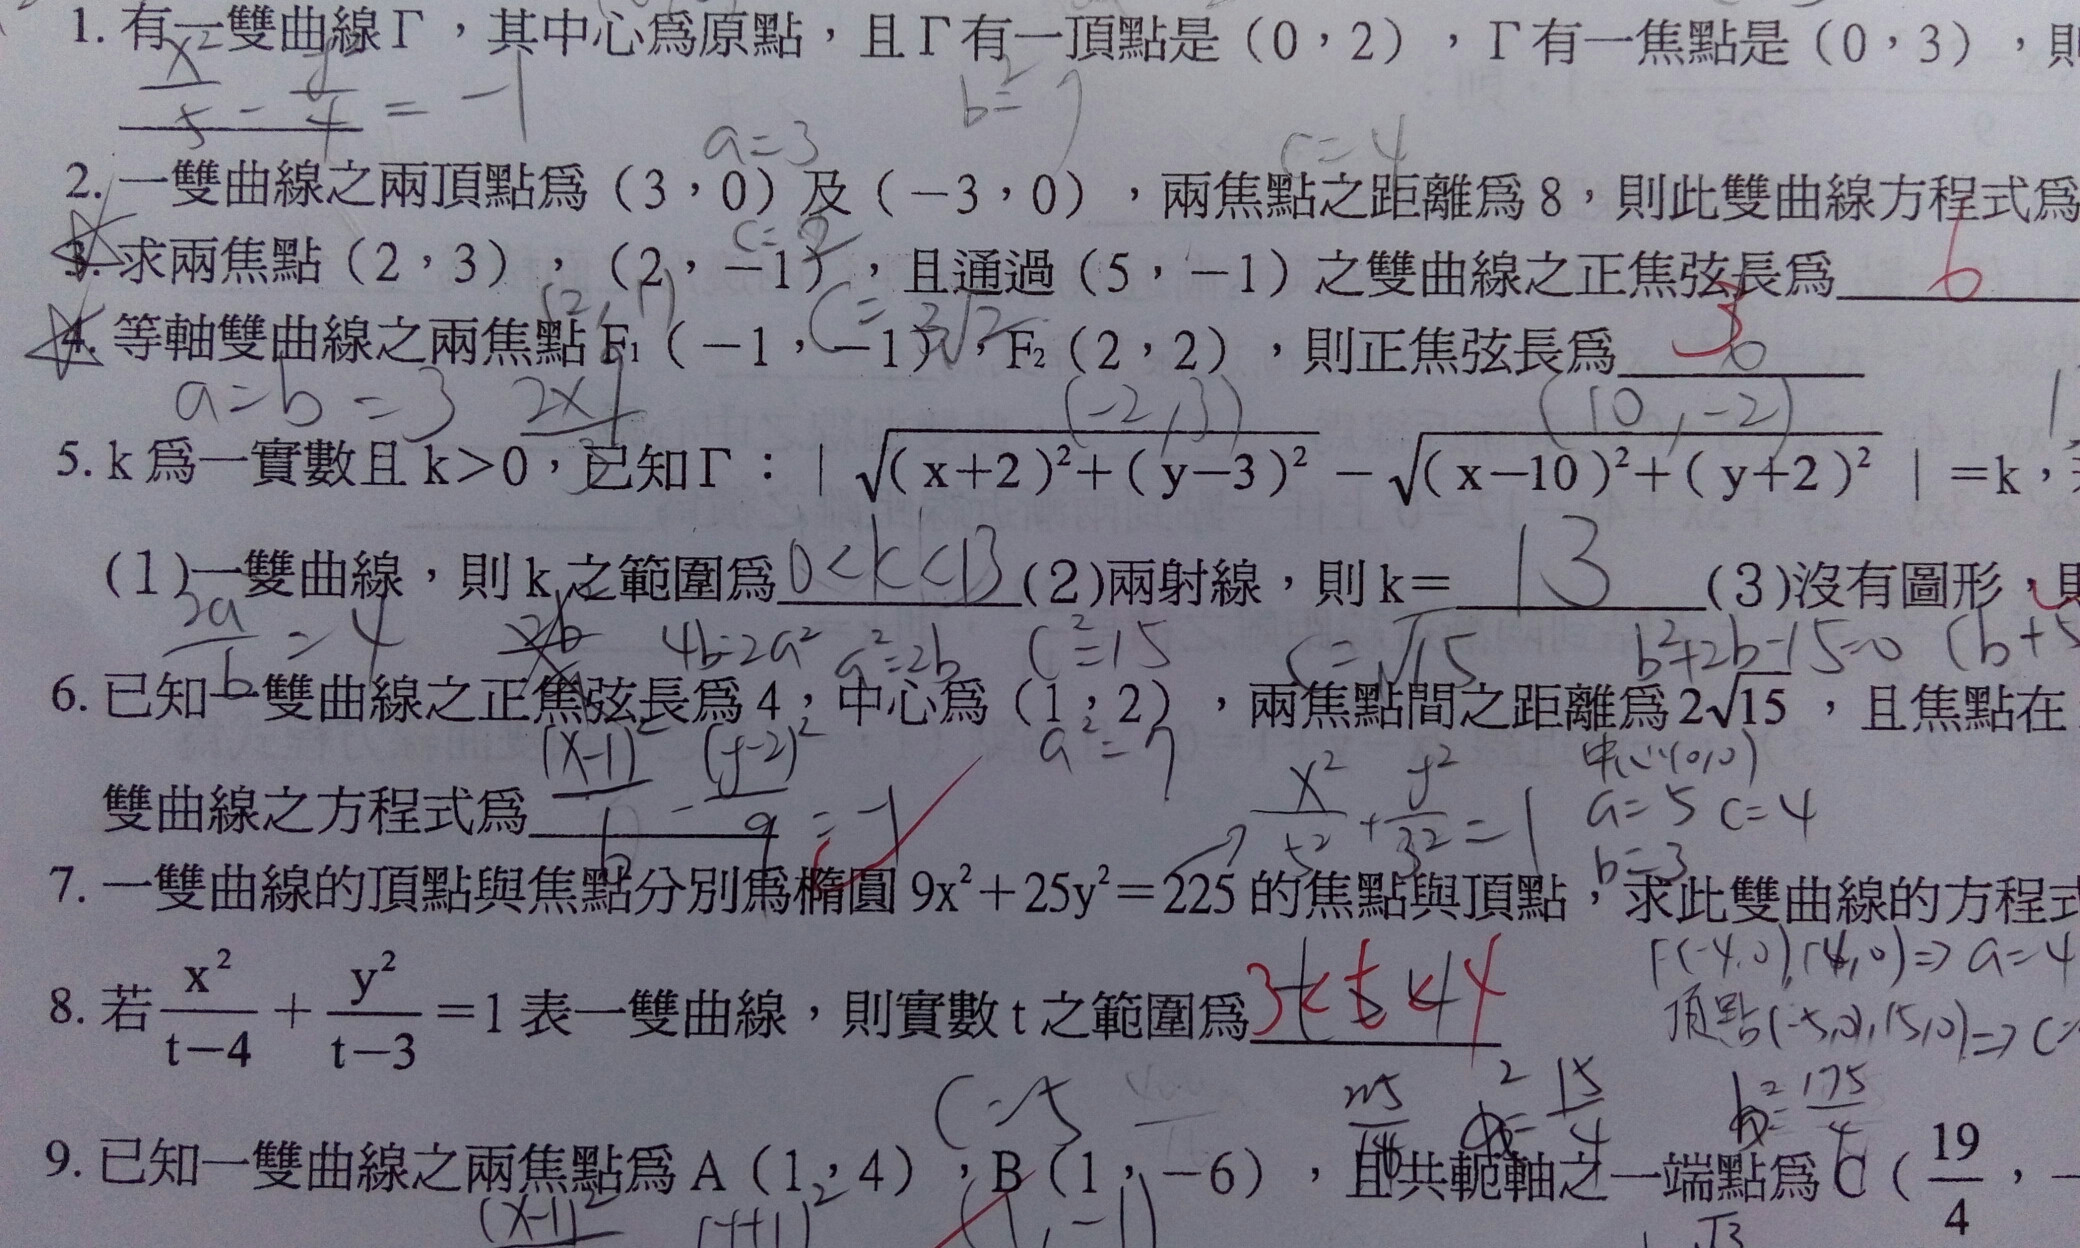 1. 有一雙曲線Γ，其中心爲原點，且Γ有一頂點是（0，2），Γ有一焦點是（0，3），則
x² y²
— − — = −1
5 4
b²=7
a=3
c=4
2. 一雙曲線之兩頂點爲（3，0）及（−3，0），兩焦點之距離爲8，則此雙曲線方程式爲
c=2
3. 求兩焦點（2，3），（2，−1），且通過（5，−1）之雙曲線之正焦弦長爲 6
(2, 1)
4. 等軸雙曲線之兩焦點F₁（−1，−1），F₂（2，2），則正焦弦長爲 3
a=b=3
(−2,3) (10,−2)
5. k爲一實數且k>0，已知Γ：| √(x+2)²+(y−3)² − √(x−10)²+(y+2)² | =k，
(1)一雙曲線，則k之範圍爲 0<k<13 (2)兩射線，則k= 13 (3)沒有圖形，
2a/b = 4 4b=2a² a²=2b c²=15 c=√15 b²+2b−15=0 (b+5
6. 已知一雙曲線之正焦弦長爲4，中心爲（1，2），兩焦點間之距離爲2√15，且焦點在
(x−1)² (y−2)²
雙曲線之方程式爲 = −1
x²/5² + y²/3² = 1
中心(0,0)
a=5 c=4
b=3
7. 一雙曲線的頂點與焦點分別爲橢圓9x²+25y²=225的焦點與頂點，求此雙曲線的方程式
F(−4,0),(4,0)⇒a=4
8. 若 x²/(t−4) + y²/(t−3) =1表一雙曲線，則實數t之範圍爲 3<t<4
頂點(−5,0),(5,0)⇒c=
c=5
9. 已知一雙曲線之兩焦點爲A（1，4），B（1，−6），且共軛軸之一端點爲C（19/4，−
(x−1)² (y+1)² (1,−1) √3